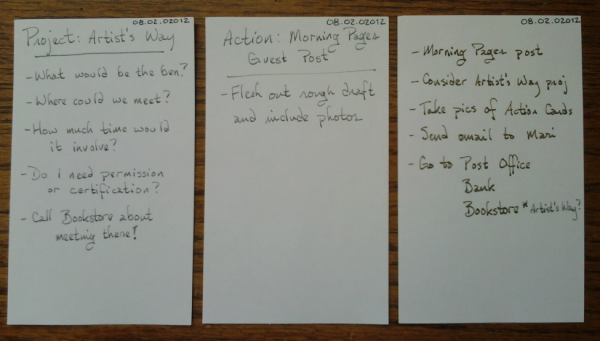 08.02.02012
Project: Artist's Way
- What would be the ben.?
- Where could we meet?
- How much time would
it involve?
- Do I need permission
or certification?
- Call Bookstore about
meeting there!
08.02.02012
Action: Morning Pages
Guest Post
- Flesh out rough draft
and include photos
08.02.02012
- Morning Pages post
- Consider Artist's Way proj
- Take pics of Action Cards
- Send email to Mari
- Go to Post Office
Bank
Bookstore * Artist's Way?